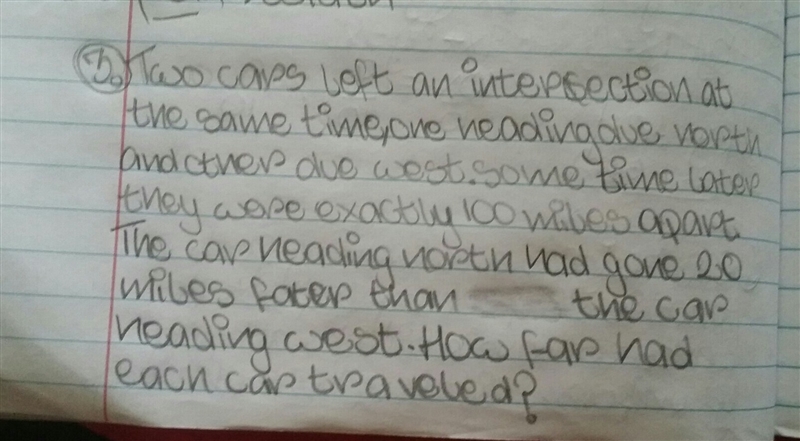 3. Two cars left an intersection at
the same time, one heading due north
and other due west. some time later
they were exactly 100 miles apart
The car heading north had gone 20
miles fater than the car
heading west. How far had
each car traveled?